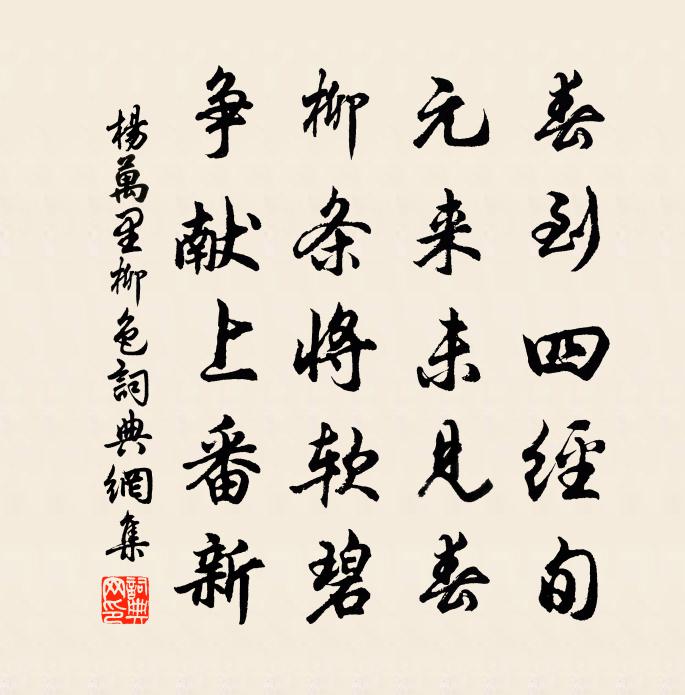 春到四經旬
元来未見春
柳条将软碧
争献上番新
楊萬里柳色詞典網集
詞典网印